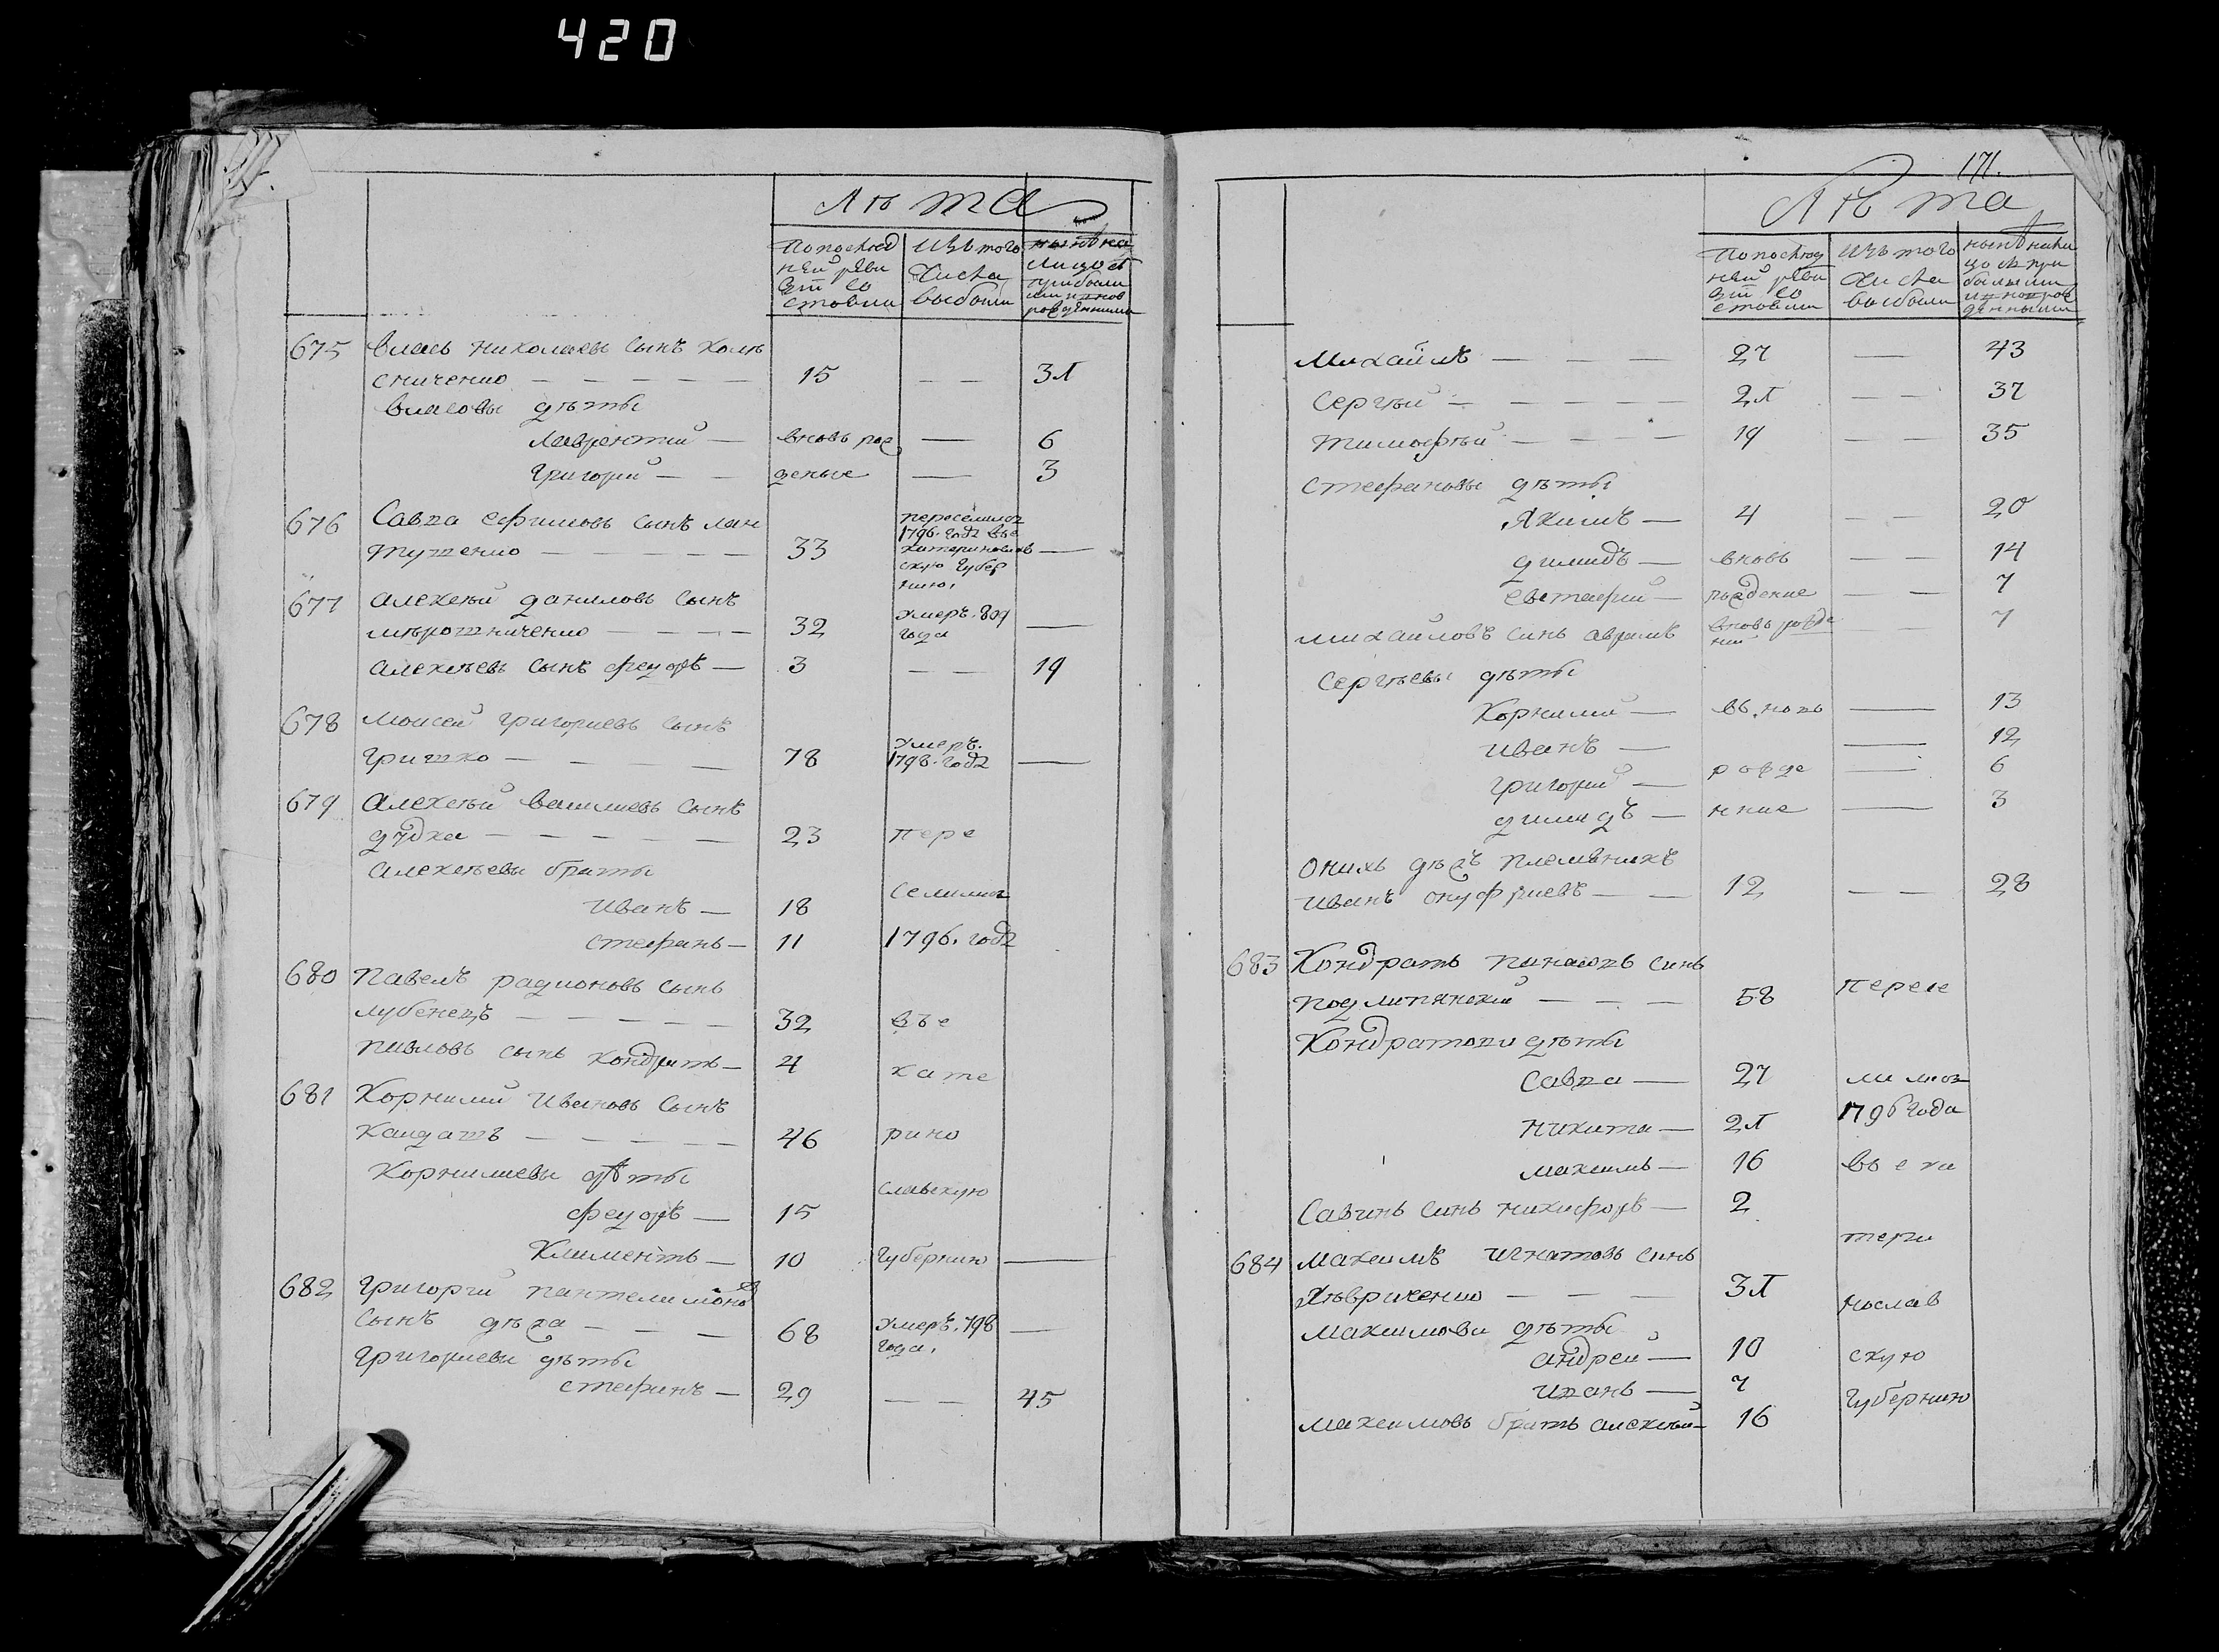 420
Лѣта
По послѣд
ней реви
зіи со
стояли
Изъ того
числа
выбыли
нынѣ на
лицо съ
прибыли
ми и внов
рожденными
675 Власъ Николаевъ сынъ Колѣ
сниченко — — — — — 15 — — 31
Власовы дѣты
Лаврентий — вновь рож — 6
Григорий — — деные — 3
676 Савва Ефимовъ сынъ Лан
тушенко — — — — — 33 —
переселился
1796. года въ е
катеринослав
скую губер
нию.
677 Алексѣй Даниловъ сынъ
мѣрошниченко — — — — 32 —
умеръ. 809
года
Алексѣевъ сынъ Феудоръ — 3 — — 19
678 Моисей Григориевъ сынъ
Гришко — — — — 78 —
умеръ.
1798. года
679 Алексѣй Василиевъ сынъ
дудка — — — — — 23 пере
Алексѣевы браты
Иванъ — 18 селились
Стефанъ — 11 1796. года
680 Павелъ Радионовъ сынъ
лубенецъ — — — — — 32 въ е
Павловъ сынъ Кондратъ — 4 кате
681 Корнилий Ивановъ сынъ
Кандашъ — — — — — 46 рино
Корнилиевы дѣты
славскую
Феудоръ — 15
Климентъ — 10 губернию —
682 Григорий Пантелимоновъ
сынъ дѣха — — — 68 умеръ. 798 —
года.
Григориевы дѣты
Стефанъ — 29 — — 45
171.
Лѣта
По послѣд
ней реви
зіи со
стояли
Изъ того
числа
выбыли
нынѣ на ли
цо съ при
былыми
и новорож
денными
Михайлъ — — — 27 — 43
Сергѣй — — — — — 21 — — 37
Тимофѣй — — — — 19 — — 35
Стефановы дѣты
Якимъ — 4 — — 20
Дилидъ — вновь — — 14
Евстафий — рождение — — 7
Михайловъ синъ Аврамъ вновь рожде — — 7
ний
Сергѣевы дѣты
Корнилий — въ. новь — 13
Иванъ — — 12
Григорий — рожде — 6
Дилидъ — нние — 3
Онихъ дѣхъ племѣнникъ
Иванъ Онуфриевъ — — 12 — — 28
683 Кондратъ Панасовъ синъ
Подлипянский — — — 58 пересе
Кондратови дѣты
Савва — 27 лились
1796 года
Никита — 21
Максимъ — 16 въ ека
Савинъ синъ Никифоръ — 2
тери
684 Максимъ Игнатовъ синъ
Хѣвриченко — — — 31 нослав
Максимови дѣты
Андрей — 10 скую
Иванъ — 7
губернию
Максимовъ братъ Алексѣй — 16